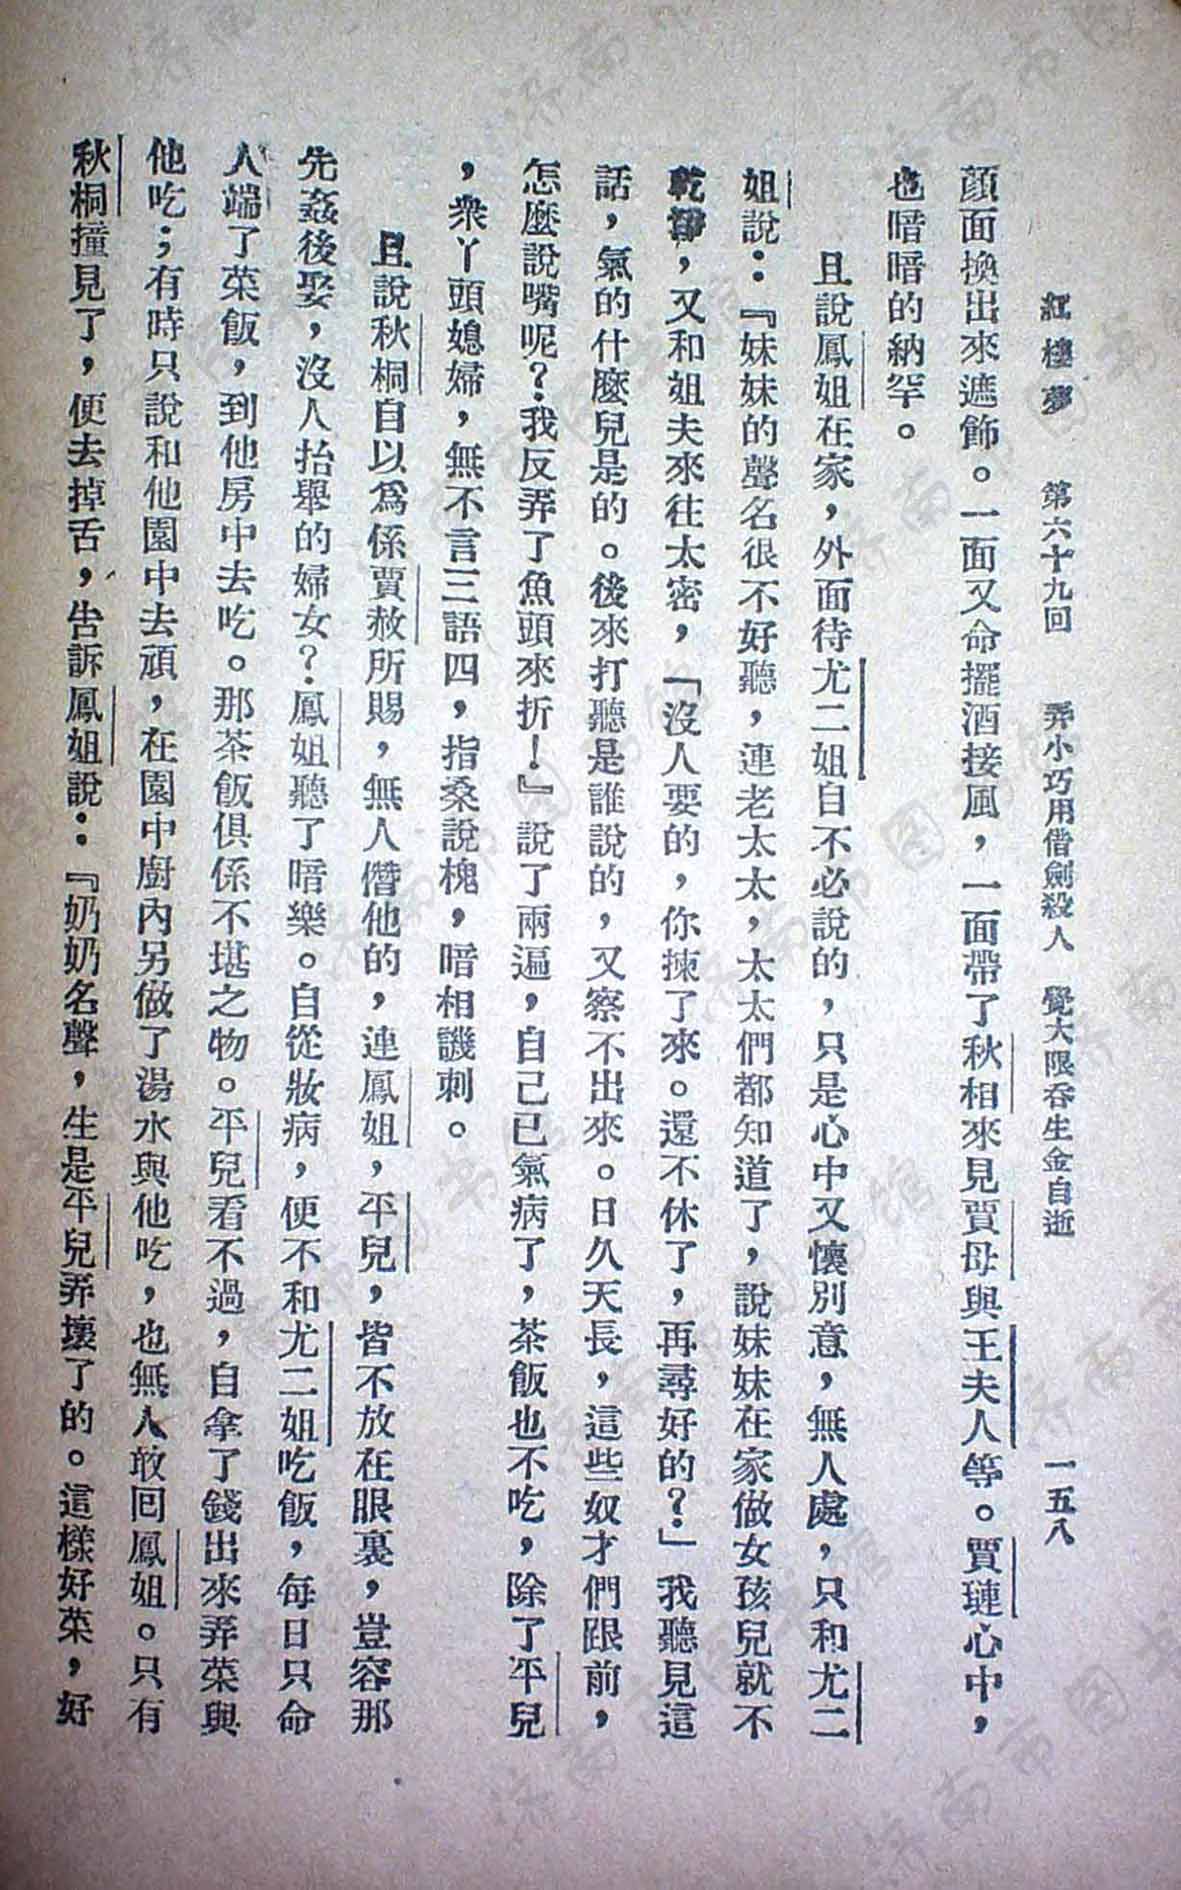 紅樓夢　第六十九回　弄小巧用借劍殺人　覺大限吞生金自逝　一五八
顏面換出來遮飾。一面又命擺酒接風，一面帶了秋相來見賈母與王夫人等。賈璉心中，
也暗暗的納罕。
且說鳳姐在家，外面待尤二姐自不必說的，只是心中又懷別意，無人處，只和尤二
姐說：『妹妹的聲名很不好聽，連老太太，太太們都知道了，說妹妹在家做女孩兒就不
乾淨，又和姐夫來往太密，「沒人要的，你揀了來。還不休了，再尋好的？」我聽見這
話，氣的什麼兒是的。後來打聽是誰說的，又察不出來。日久天長，這些奴才們跟前，
怎麼說嘴呢？我反弄了魚頭來折！』說了兩遍，自己已氣病了，茶飯也不吃，除了平兒
，衆丫頭媳婦，無不言三語四，指桑說槐，暗相譏刺。
且說秋桐自以爲係賈赦所賜，無人僭他的，連鳳姐，平兒，皆不放在眼裏，豈容那
先姦後娶，沒人抬舉的婦女？鳳姐聽了暗樂。自從妝病，便不和尤二姐吃飯，每日只命
人端了菜飯，到他房中去吃。那茶飯俱係不堪之物。平兒看不過，自拿了錢出來弄菜與
他吃；有時只說和他園中去頑，在園中廚內另做了湯水與他吃，也無人敢回鳳姐。只有
秋桐撞見了，便去掉舌，告訴鳳姐說：『奶奶名聲，生是平兒弄壞了的。這樣好菜，好